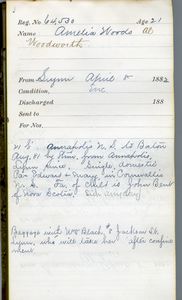 Reg. No. 64,530 Age 21
Name Amelia Woods al
Woodworth
From Lynn April 5 1882
Condition, Inc
Discharged 188
Sent to
For Nos.
W. S. Annapolis N. S. to Boston
Aug. 81 by from Annapolis,
Lynn since. Single domestic
Par Edward & Mary in Cornwallis
N. S. Fa. of child is John Bent
of Nova Scotia.
Baggage with Wm Beach, 5 Jackson St.
Lynn, who will take her after confine
ment